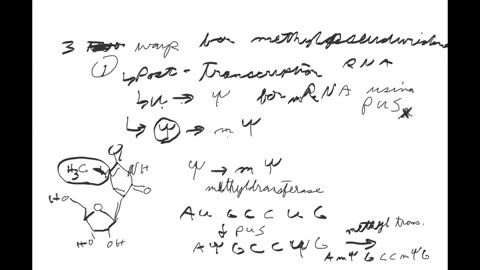 3 ways for methylpseudouridine
① RNA
↳ Post-Transcription
↳ U → Ψ for mRNA using PUS
↳ Ψ → mΨ
O
H₃C NH
O
HO
O
HO OH
Ψ → mΨ
methyltransferase
AUGCCUG
↓ PUS
AΨGCCΨG methyl trans. →
AmΨGCCmΨG